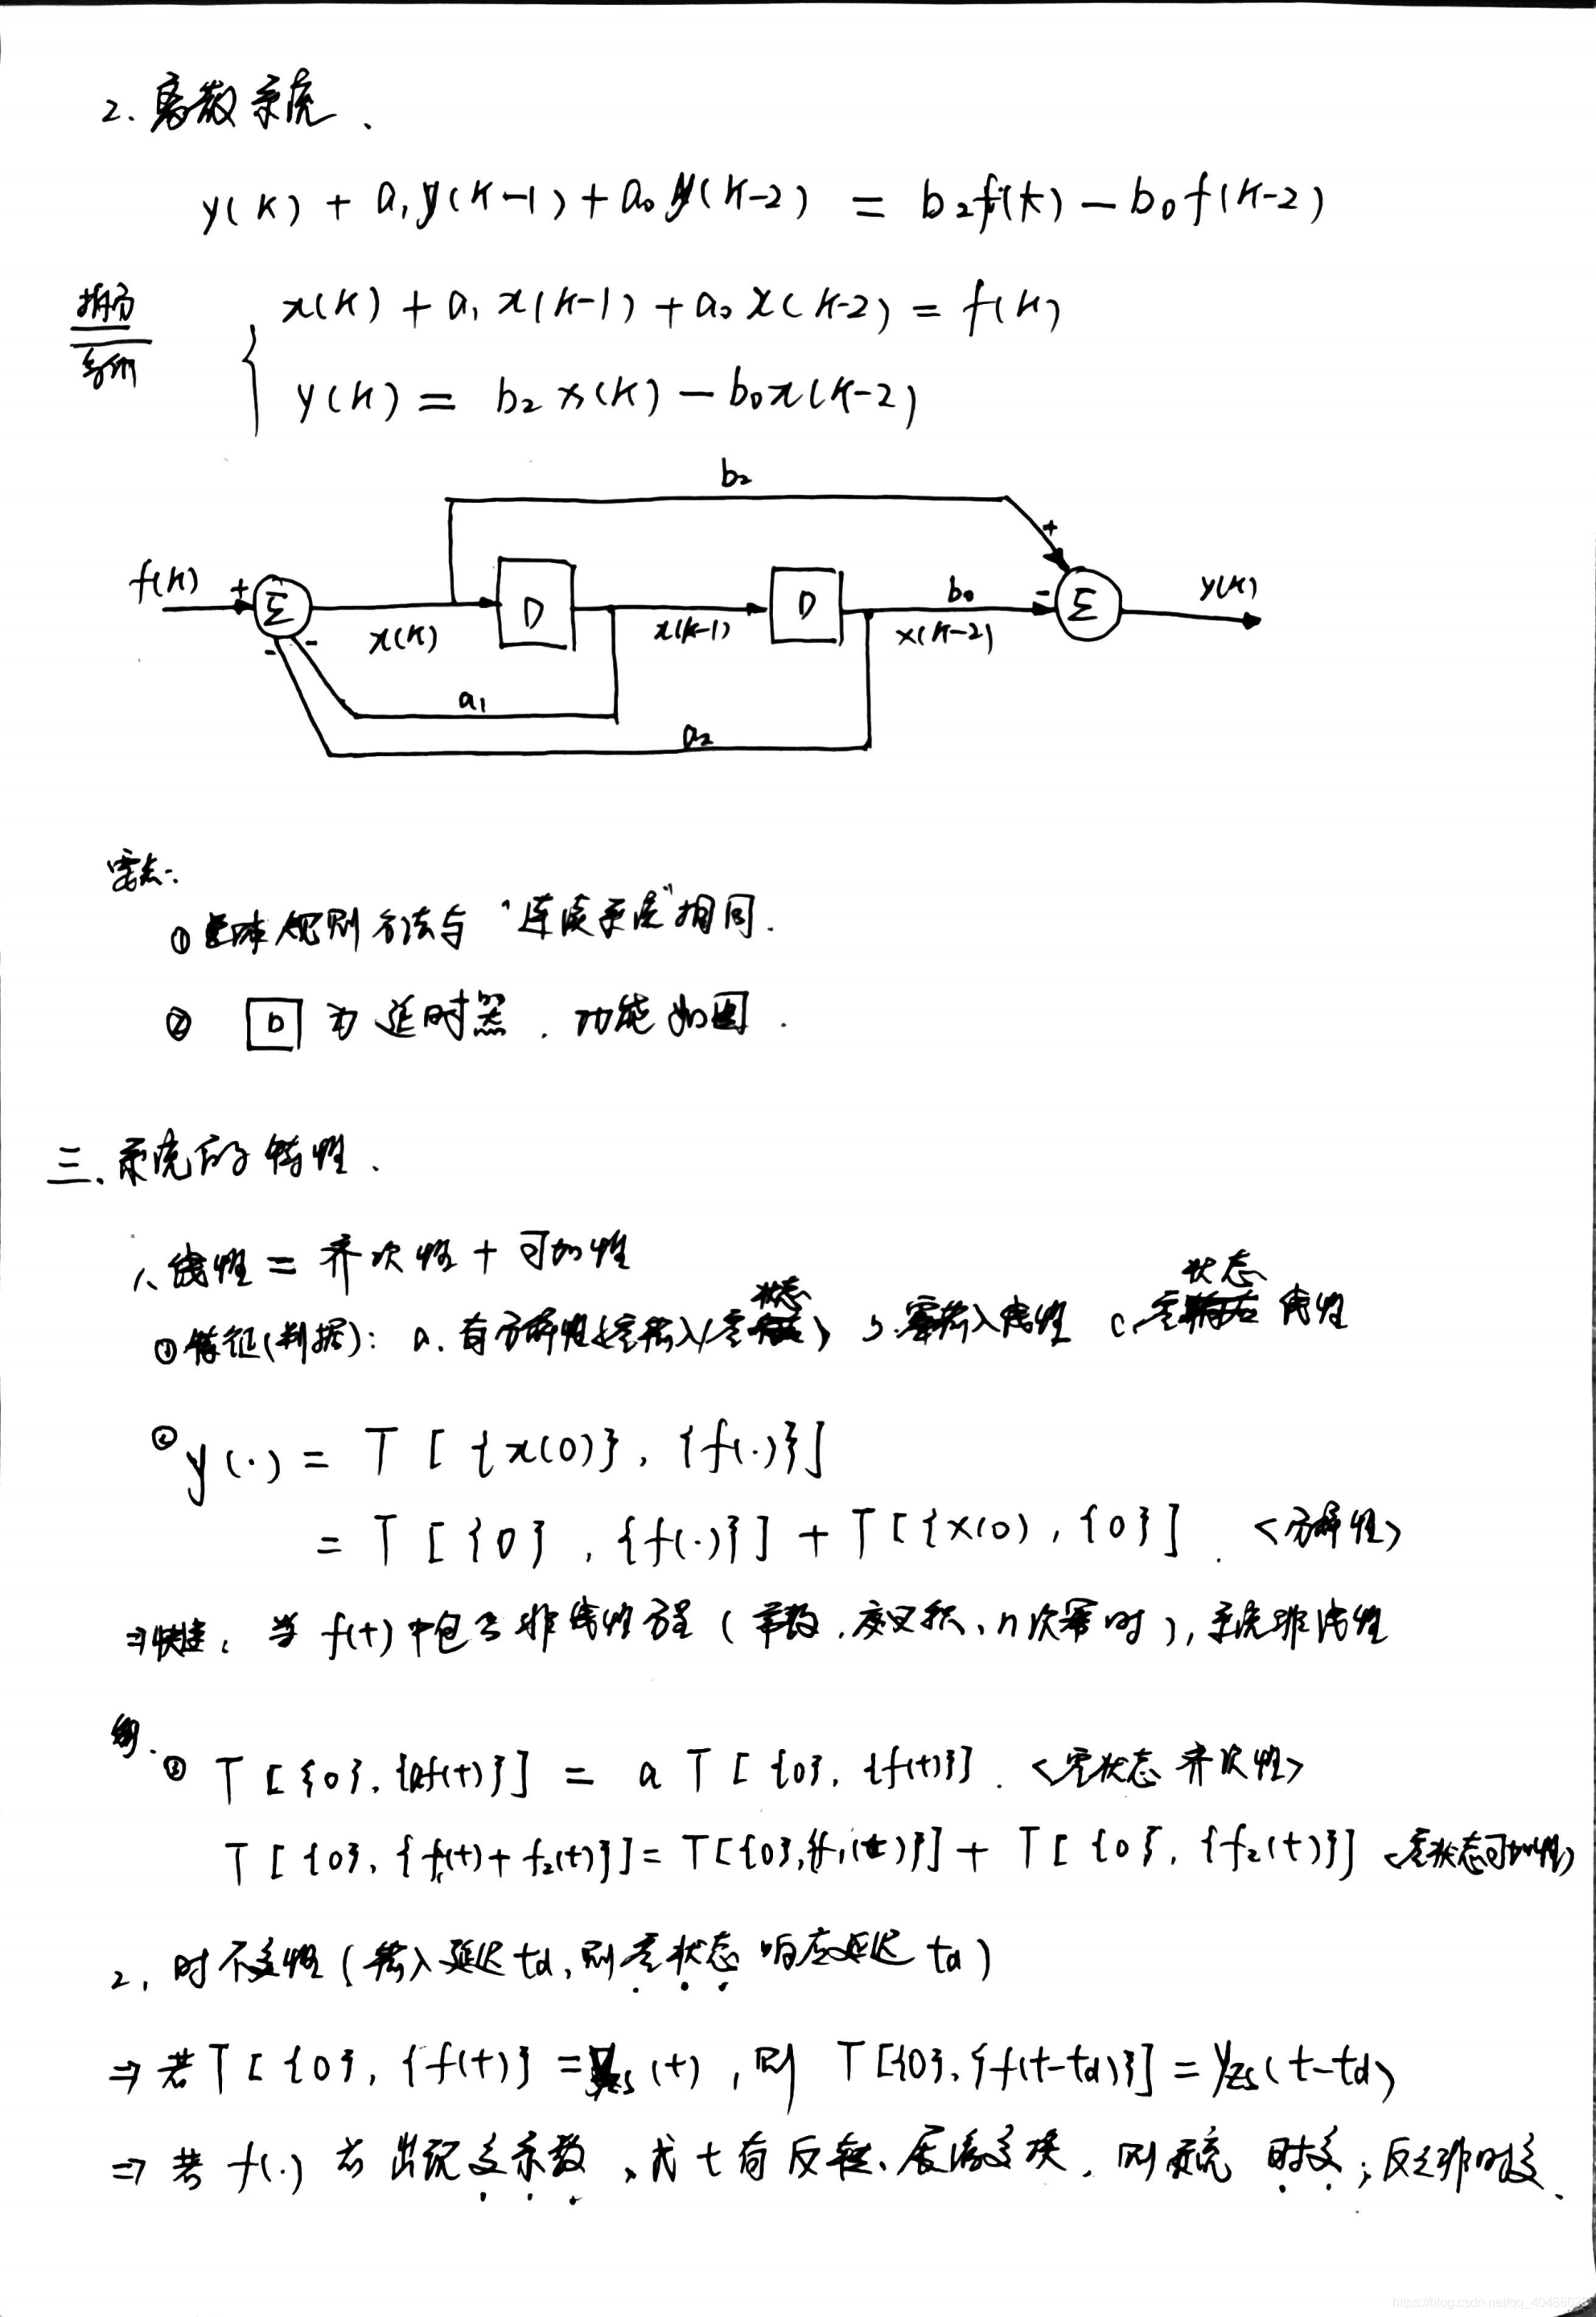 2. 离散系统.
y(k) + a₁y(k-1) + a₀y(k-2) = b₂f(k) - b₀f(k-2)
拆分
x(k) + a₁x(k-1) + a₀x(k-2) = f(k)
y(k) = b₂x(k) - b₀x(k-2)
b₂
+
f(k) + Σ D D b₀ - Σ y(k)
x(k) x(k-1) x(k-2)
- -
a₁
a₂
要点:
① 整体规则方法与"连续系统"相同.
② D 为延时器. 功能如图.
三. 系统的特性.
1、线性 = 齐次性 + 可加性
状态 状态
①特征(判据): a. 有分解性(零输入/零) b. 零输入线性 c. 零 线性
② y(·) = T[{x(0)}, {f(·)}]
= T[{0}, {f(·)}] + T[{x(0), {0}]. <分解性>
⇒快速: 当 f(t) 中包含非线性方程 (常数, 交叉积, n次幂时), 系统非线性
③ T[{0}, {af(t)}] = a T[{0}, {f(t)}]. <零状态齐次性>
T[{0}, {f₁(t)+f₂(t)}] = T[{0},{f₁(t)}] + T[{0}, {f₂(t)}] <零状态可加性>
2, 时不变性 (输入延迟td, 则零状态响应延迟td)
⇒ 若T[{0}, {f(t)} = yzs(t), 则 T[{0}, {f(t-td)}] = yzs(t-td)
⇒ 若 f(·) 前出现变系数、或 t 有反转、展缩变换. 则系统 时变; 反之非时变.